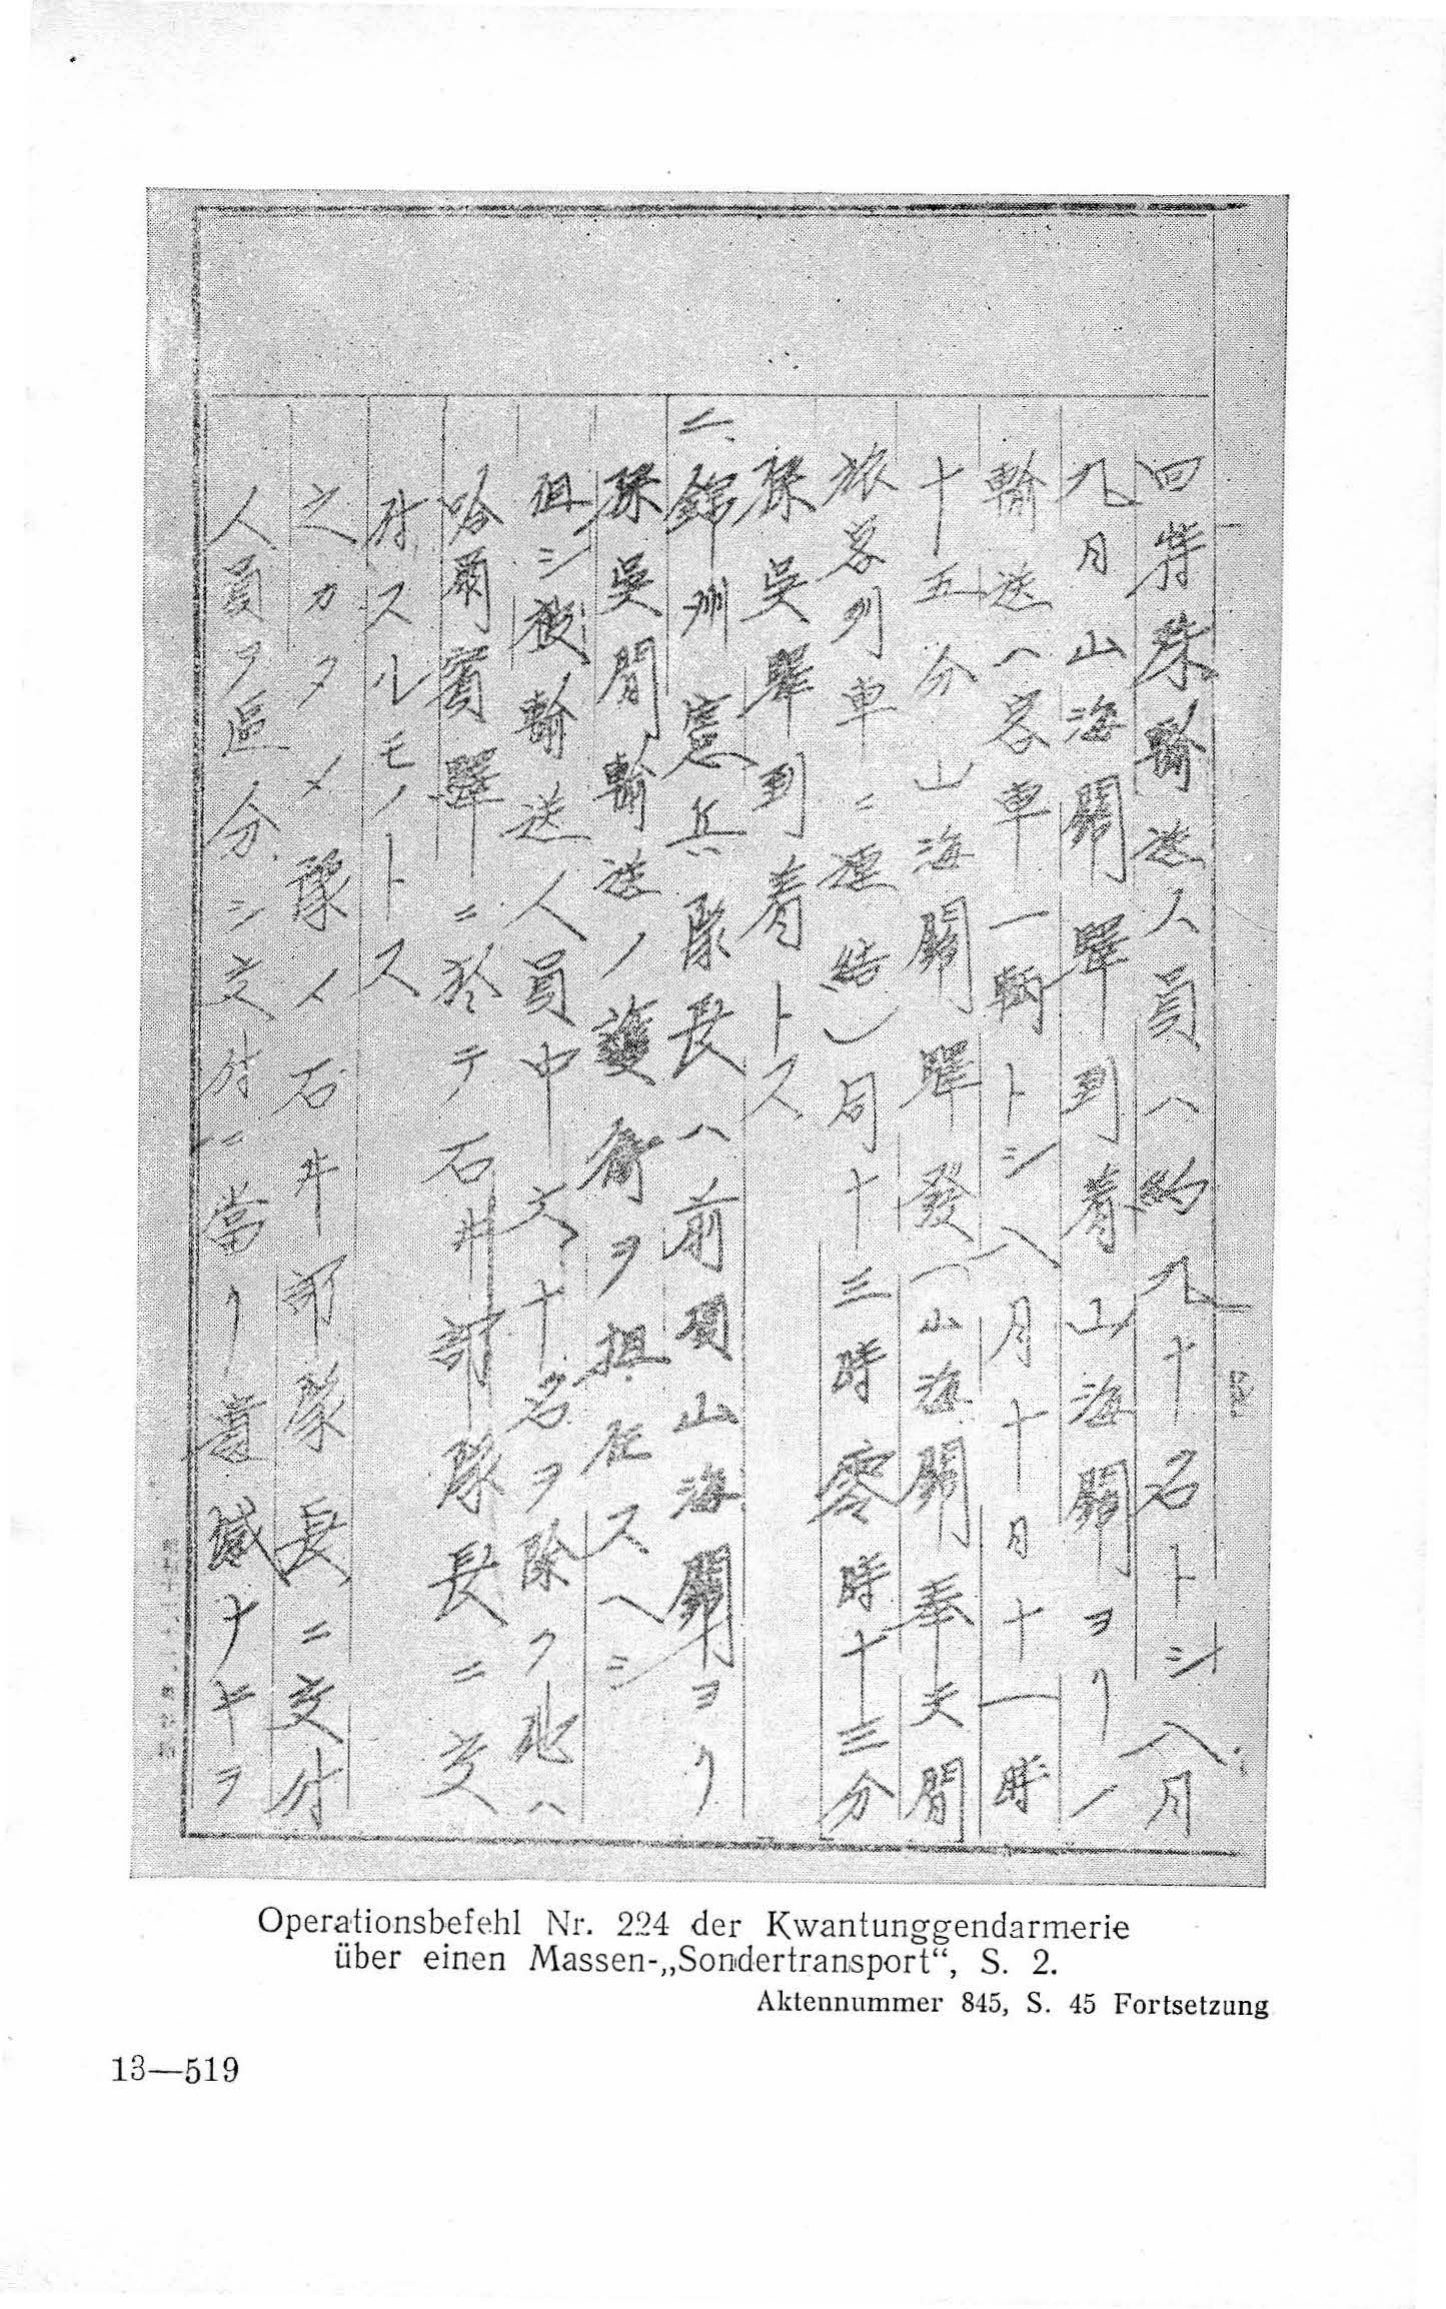 四特殊輸送人員ハ約九十名トシ八月
九日山海關驛到着山海關ヨリノ
輸送ハ客車一輌トシ八月十日十一時
十五分山海關驛發(山海關奉天間
旅客列車ニ連結)同十三時零時十三分
孫吳驛到着トス
二、錦州憲兵隊長ハ前項山海關ヨリ
孫吳間輸送ノ護衛ヲ担任スヘシ
但シ被輸送人員中六十名ヲ除ク他ハ
哈爾賓驛ニ於テ石井部隊長ニ交
付スルモノトス
之カタメ豫メ石井部隊長ニ交付
人員ヲ區分シ交付ニ當リ遺憾ナキヲ
Operationsbefehl Nr. 224 der Kwantunggendarmerie
über einen Massen-„Sondertransport“, S. 2.
Aktennummer 845, S. 45 Fortsetzung
13—519